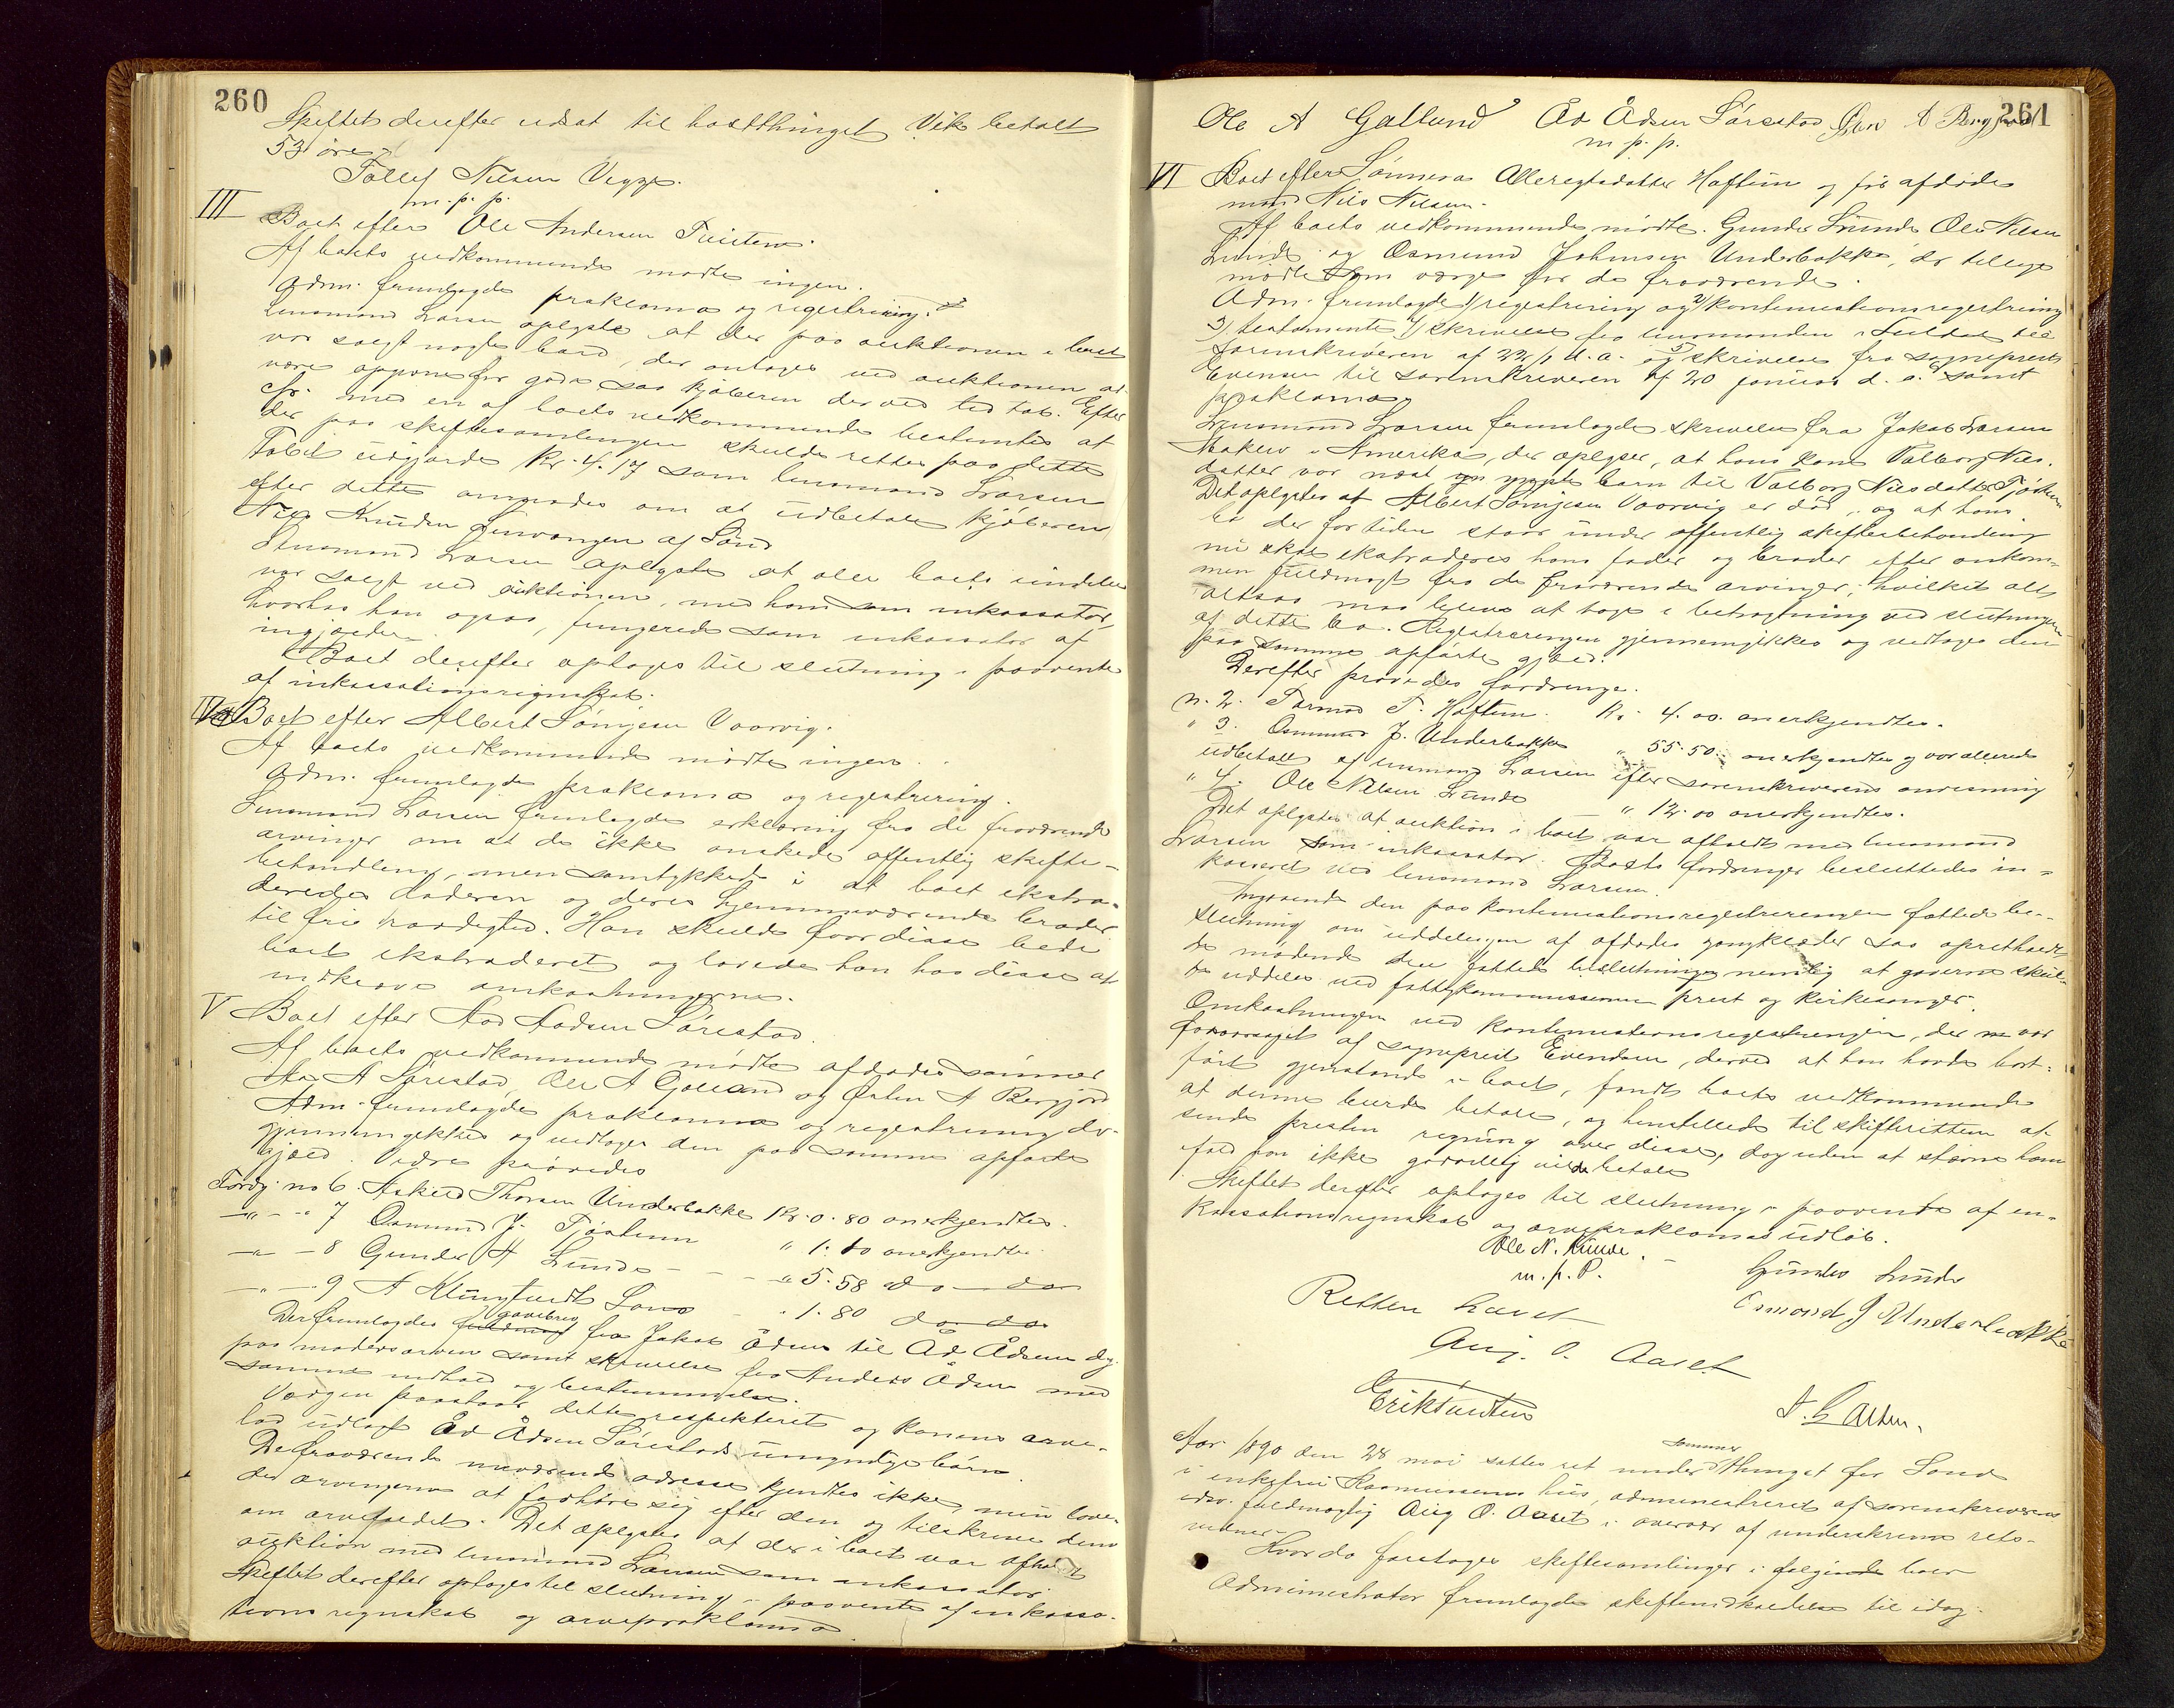 260
Skiftet derefter udsat til høstthinget Vets betalt
53 øre.
Tollef Nilsen Vegge.
m. p. p.
III Boet efter Ole Andersen Tuiten.
Af boets vedkommende mødte ingen.
Adm. fremlagde proklama og registrering.
Lensmand Larsen oplyste at der paa auktionen i boet
var solgt nogle baand, der antoges ved auktionen at
være oppone for gode saa kjøberen derved led tab. Efter
med en af boets vedkommende bestemtes at
der paa skiftesamlingen skulde rettes paa dette
Tabet udgjorde Kr. 4.17 som lensmand Larsen
efter dette anmodes om at udbetale kjøberen
Nils Knudsen af Sand
Lensmand Larsen oplyste at alle boets eiendele
var solgt ved auktionen, med ham som inkassator,
hvorhos han ogsaa fungerede som inkassator af
ingjælden.
Boet derefter optoges til slutning i paavente
af inkassationsregnskab.
IV Boet efter Albert Sønjesen Vaarvig.
Af boets vedkommende mødte ingen.
Adm. fremlagde proklama og registrering.
Lensmand Larsen fremlagde erklæring fra de fraværende
arvinger om at de ikke ønskede offentlig skifte-
behandling, men samtykkede i at boet ekstra-
deredes faderen og deres hjemmeværende broder
til fri raadighed. Han skulde for disse bede
boet ekstraderet og lovede han hos disse at
indkræve omkostningerne.
V Boet efter Aad Aadsen Sørestad.
Af boets vedkommende mødte afdødes sønner
Aad A Sørestad, Ole A Galland og Østen A Bergjord
Adm. fremlagde proklama og registrering der
gjennemgikkes og vedtoges den paa samme opførte
gjæld. Videre prøvedes
Fordg. no 6. Askild Thorsen Underbakke Kr. 0.80 anerkjendtes.
" " 7 Osmund J. Tjøstem " 1.10 anerkjendtes.
" " 8 Gunder H Lunde " 5.58 do do
" " 9 A Klungtvedt Sand " 1.80 do do
Der fremlagdes gavebrev fra Jakob Ådsen til Åd Ådsen dy.
paa modersarven samt skrivelse fra Anders Ådsen med
samme indhold og bestemmelse.
Værgen paastod dette respekteret og konens arve-
lod udlagt Åd Ådsen Sørestads umyndige børn.
De fraværende nuværende adresse kjendtes ikke, men love-
des arvingerne at forhøre sig efter den og tilskrive dem
om arvefaldet. Det oplystes at der i boet var afholdt
auktion med lensmand Larsen som inkassator.
Skiftet derefter optoges til slutning i paavente af inkassa-
tionsregnskab og arveproklama.
261
Ole A Galland Åd Ådsen Sørestad Østen A Bergjord
m p. p.
VI Boet efter Sønneva Alleregtsdatter Haftun og før afdøde
mand Nils Nilsen.
Af boets vedkommende mødte. Gunder Lunde Ole Nilsen
Lunde og Osmund Johnsen Underbakke, der tillige
mødte som værge for de fraværende.
Adm. fremlagde 1/ registrering og 2/ kontinuationsregistrering
3/ testamente 4/ skrivelse fra lensmanden i Suldal til
sorenskriveren af 22/1 d. a. og 5/ skrivelse fra sogneprest
Evensen til sorenskriveren af 20 januar d. a. samt
proklama.
Lensmand Larsen fremlagde skrivelse fra Jakob Larsen
i Amerika, der oplyser, at hans kone Valborg Nils-
datter var næst yngste barn til Valborg Nilsdatter Tjøstem
Det oplystes at Albert Sønjesen Vaarvig er død, og at hans
bo der for tiden staar under offentlig skiftebehandling
nu skal ekstraderes hans fader og broder efter ankom-
men fuldmagt fra de fraværende arvinger; hvilket alt
altsaa maa blive at tage i betragtning ved slutningen
af dette bo. Registreringen gjennemgikkes og vedtoges den
paa samme opførte gjæld.
Derefter prøvedes fordringer.
N. 2. Tormod T. Haftun Kr. 4.00. anerkjendtes.
" 3. Osmund J. Underbakke " 55.50. anerkjendtes og var allerede
udbetalt af lensmand Larsen efter sorenskriverens anvisning
" 4. Ole Nilsen Lunde " 12.00 anerkjendtes.
Det oplystes at auktion i boet var afholdt med lensmand
Larsen som inkassator. Boets fordringer besluttedes in-
kasseret ved lensmand Larsen.
Angaaende den paa kontinuationsregistreringen fattede be-
slutning om uddelingen af afdødes gangklæder saa opretholdt
de mødende den fattede beslutning nemlig at gaverne skul-
de uddeles ved fattigkommissionen prest og kirkesanger.
Omkostningen ved kontinuationsregistreringen, der var
foraarsaget af sogneprest Evensen, derved at han havde bort-
ført gjenstande i boet, fandt boets vedkommende
at denne burde betale, og henstilledes til skifteretten at
sende presten regning over disse, dog uden at stævne ham
ifald han ikke godvillig vilde betale
Skiftet derefter optoges til slutning i paavente af in-
kassationsregnskab og arveproklamas udløb.
Ole N. Lunde.
m. p. P.
Gunder Lunde
Osmond J Underbakke
Retten hævet
Aug. O. Aaset
Erik
Aar 1890 den 28 mai sattes ret under sommerthinget for Sand
i enkefru Rasmussens hus, administreret af sorenskriverens
edsv. fuldmægtig Aug O. Aaset i overvær af underskrevne rets-
vidner.
Hvor da foretoges skiftesamlinger i følgende boer
Administrator fremlagde skifteindkaldelse til idag.